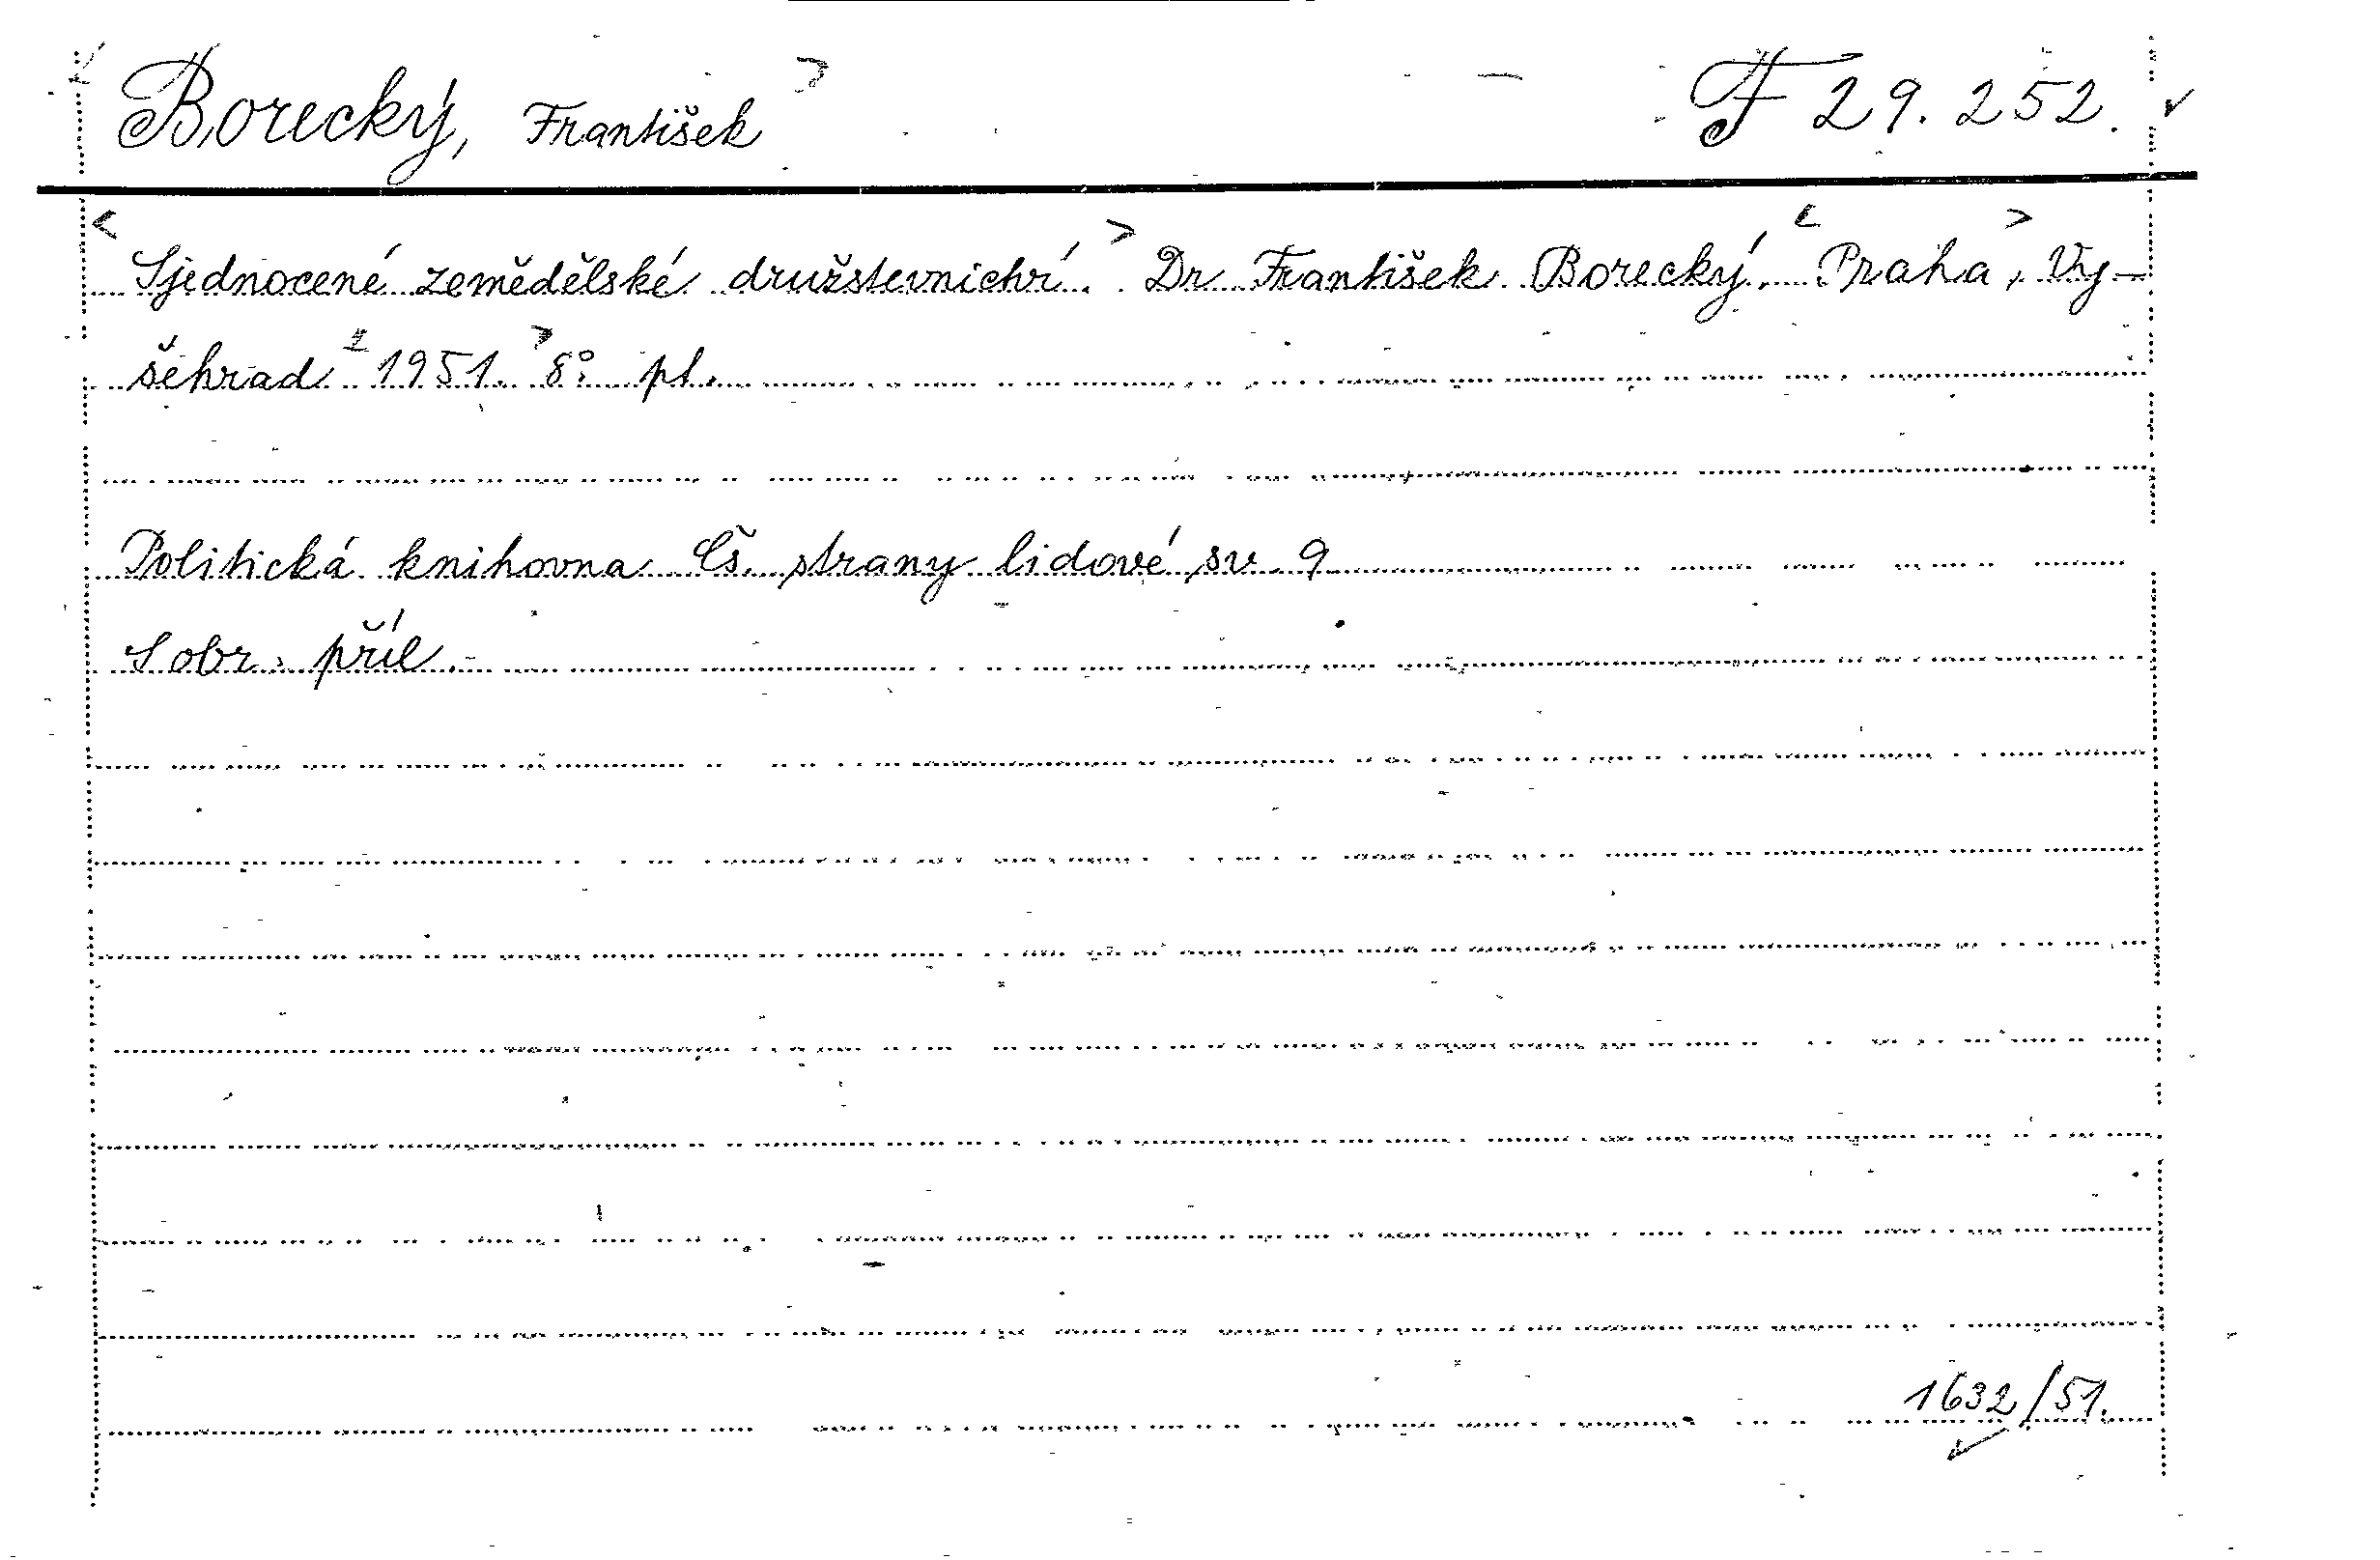 Borecký, František F 29.252.
Sjednocené zemědělské družstevnictví. Dr František Borecký, Praha, Vy-
šehrad 1951. 8°. pl.
Politická knihovna Čs. strany lidové sv. 9
S obr. příl.
1632/51.